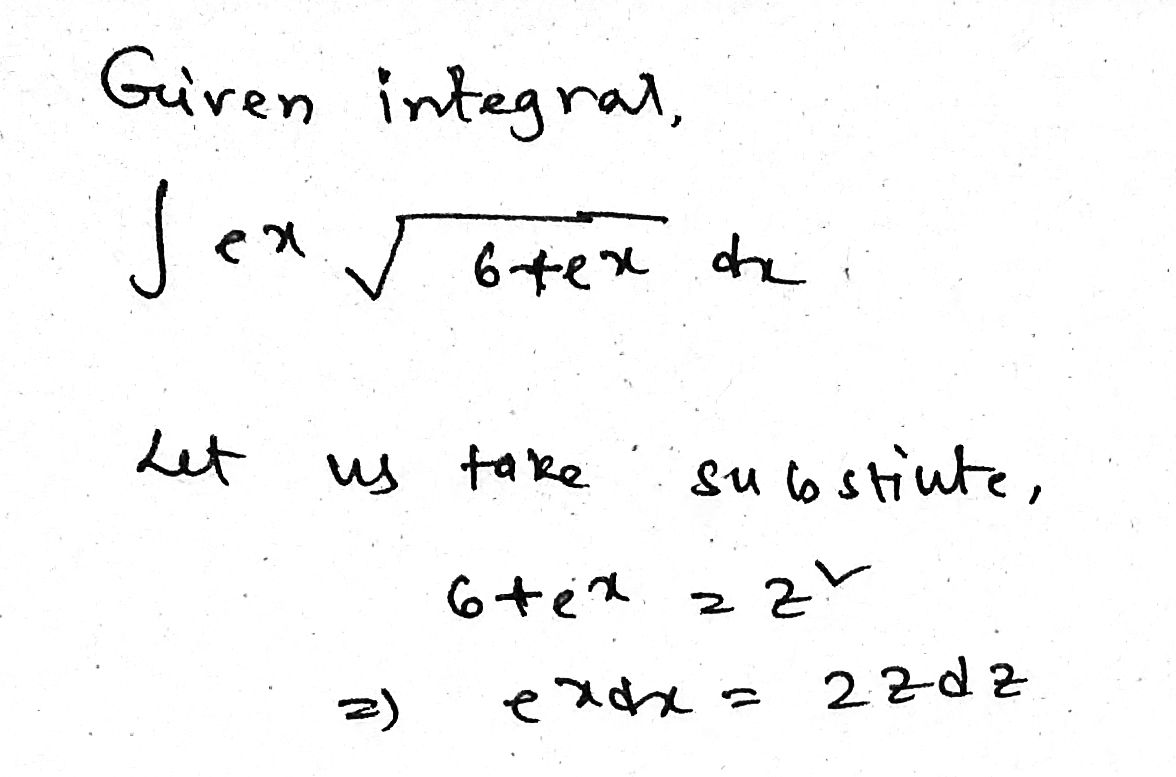 Given integral,
∫ e^x √(6+e^x) dx
Let us take substiute,
6+e^x = z^2
=) e^x dx = 2zdz